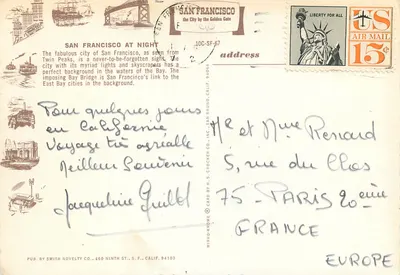 SAN FRANCISCO
the City by the Golden Gate
LIBERTY FOR ALL
US
AIR MAIL
15¢
SAN FRANCISCO AT NIGHT
The fabulous city of San Francisco, as seen from
Twin Peaks, is a never-to-be-forgotten sight. The
city with its myriad lights and skyscrapers has a
perfect background in the waters of the Bay. The
imposing Bay Bridge is San Francisco's link to the
East Bay cities in the background.
address
Pour quelques jours
en Californie
Voyage très agréable
Meilleur Souvenir
Jacqueline
Mr et Mme Renard
5, rue du Clos
75 - PARIS 20 eme
FRANCE
EUROPE
PUB. BY SMITH NOVELTY CO., NINTH ST., S. F., CALIF. 94103